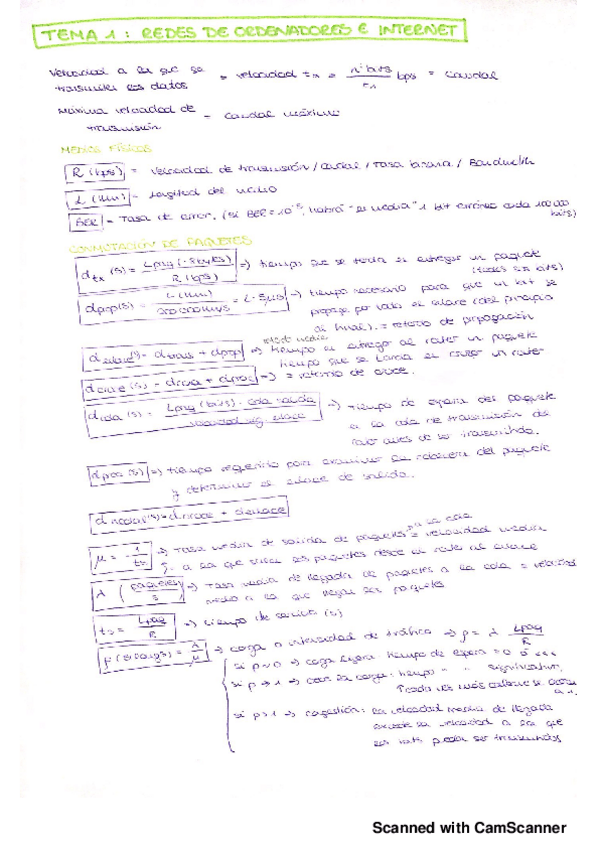 TEMA 1: REDES DE ORDENADORES E INTERNET
Velocidad a la que se transmiten los datos → velocidad tx → nº bits / tx bps = caudal
Máxima velocidad de transmisión = caudal máximo
MEDIOS FÍSICOS
R (bps) = velocidad de transmisión / caudal / Tasa binaria / Bandwidth
L (km) = Longitud del
BER = Tasa de error. (si BER = 10^-5, habrá "de media" 1 bit erróneo cada 100 000 bits)
CONMUTACIÓN DE PAQUETES
d tx (s) = Lpaq (·8 bytes) / R (bps) ⇒ tiempo que se tarda en entregar un paquete
(todos sus bits)
dprop(s) = L (km) / = L · 5µs ⇒ tiempo necesario para que un bit se
propague por todo el enlace (del principio
al final). = retardo de propagación
denlace(s) = dtrans + dprop ⇒ tiempo en entregar al router un paquete
retardo medio
tiempo que se tarda en cruzar un router
dcruce (s) = dcola + dproc ⇒ = retardo de cruce.
dcola (s) = Lpaq (bits) · cola salida / velocidad enlace ⇒ tiempo de espera del paquete
en la cola de transmisión del
router antes de ser transmitido.
dproc (s) ⇒ tiempo requerido para examinar la cabecera del paquete
y determinar el enlace de salida.
dnodal (s) = dcruce + denlace
µ = 1 / tx ⇒ Tasa media de salida de paquetes en la cola = velocidad media
a la que salen los paquetes desde el router al enlace
λ (paquetes / s) ⇒ Tasa media de llegada de paquetes a la cola = velocidad
media a la que llegan los paquetes
ts = Lpaq / R ⇒ tiempo de servicio (s)
ρ = λ / µ ⇒ carga o intensidad de tráfico → ρ = λ Lpaq / R
si ρ ≈ 0 ⇒ carga ligera tiempo de espera = 0
si ρ → 1 ⇒ carga: tiempo " " significativo,
si ρ > 1 ⇒ congestión: la velocidad media de llegada
excede la velocidad a la que
los bits pueden ser transmitidos
Scanned with CamScanner